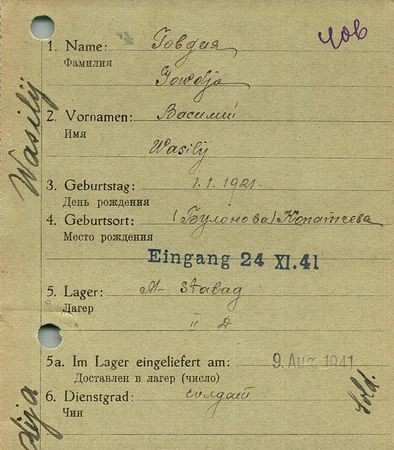 чов
1. Name: Говдя
Фамилия
Gowdja
2. Vornamen: Василий
Имя
Wasilÿ
3. Geburtstag: 1.1.1921.
День рождения
4. Geburtsort: (Булонова) Копатеева
Место рождения
Eingang 24 XI. 41
5. Lager: M-Stalag
Лагер
II D
5a. Im Lager eingeliefert am: 9. Aug. 1941
Доставлен в лагер (число)
6. Dienstgrad: солдат
Чин
Sold.
Wasilÿ
dja